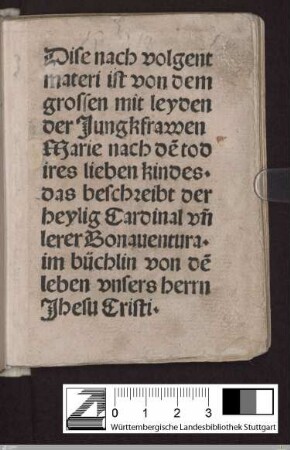 Dise nach volgent
materi ist von dem
grossen mit leyden
der Jungkfrawen
Marie nach dē tod
ires lieben kindes.
das beschreibt der
heylig Cardinal vñ
lerer Bonauentura.
im büchlin von dē
leben vnsers herrn
Jhesu Cristi.
0 1 2 3
Württembergische Landesbibliothek Stuttgart